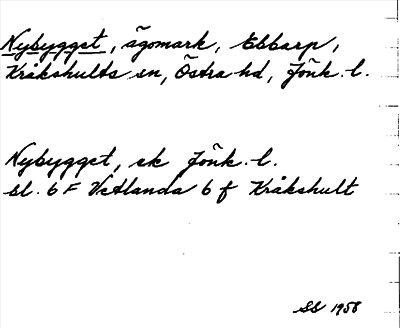 Nybygget, ägomark, Ebbarp,
Kråkshults sn, Östra hd, Jönk. l.
Nybygget, ek Jönk. l.
bl. 6 F Vetlanda 6 f Kråkshult
SS 1958